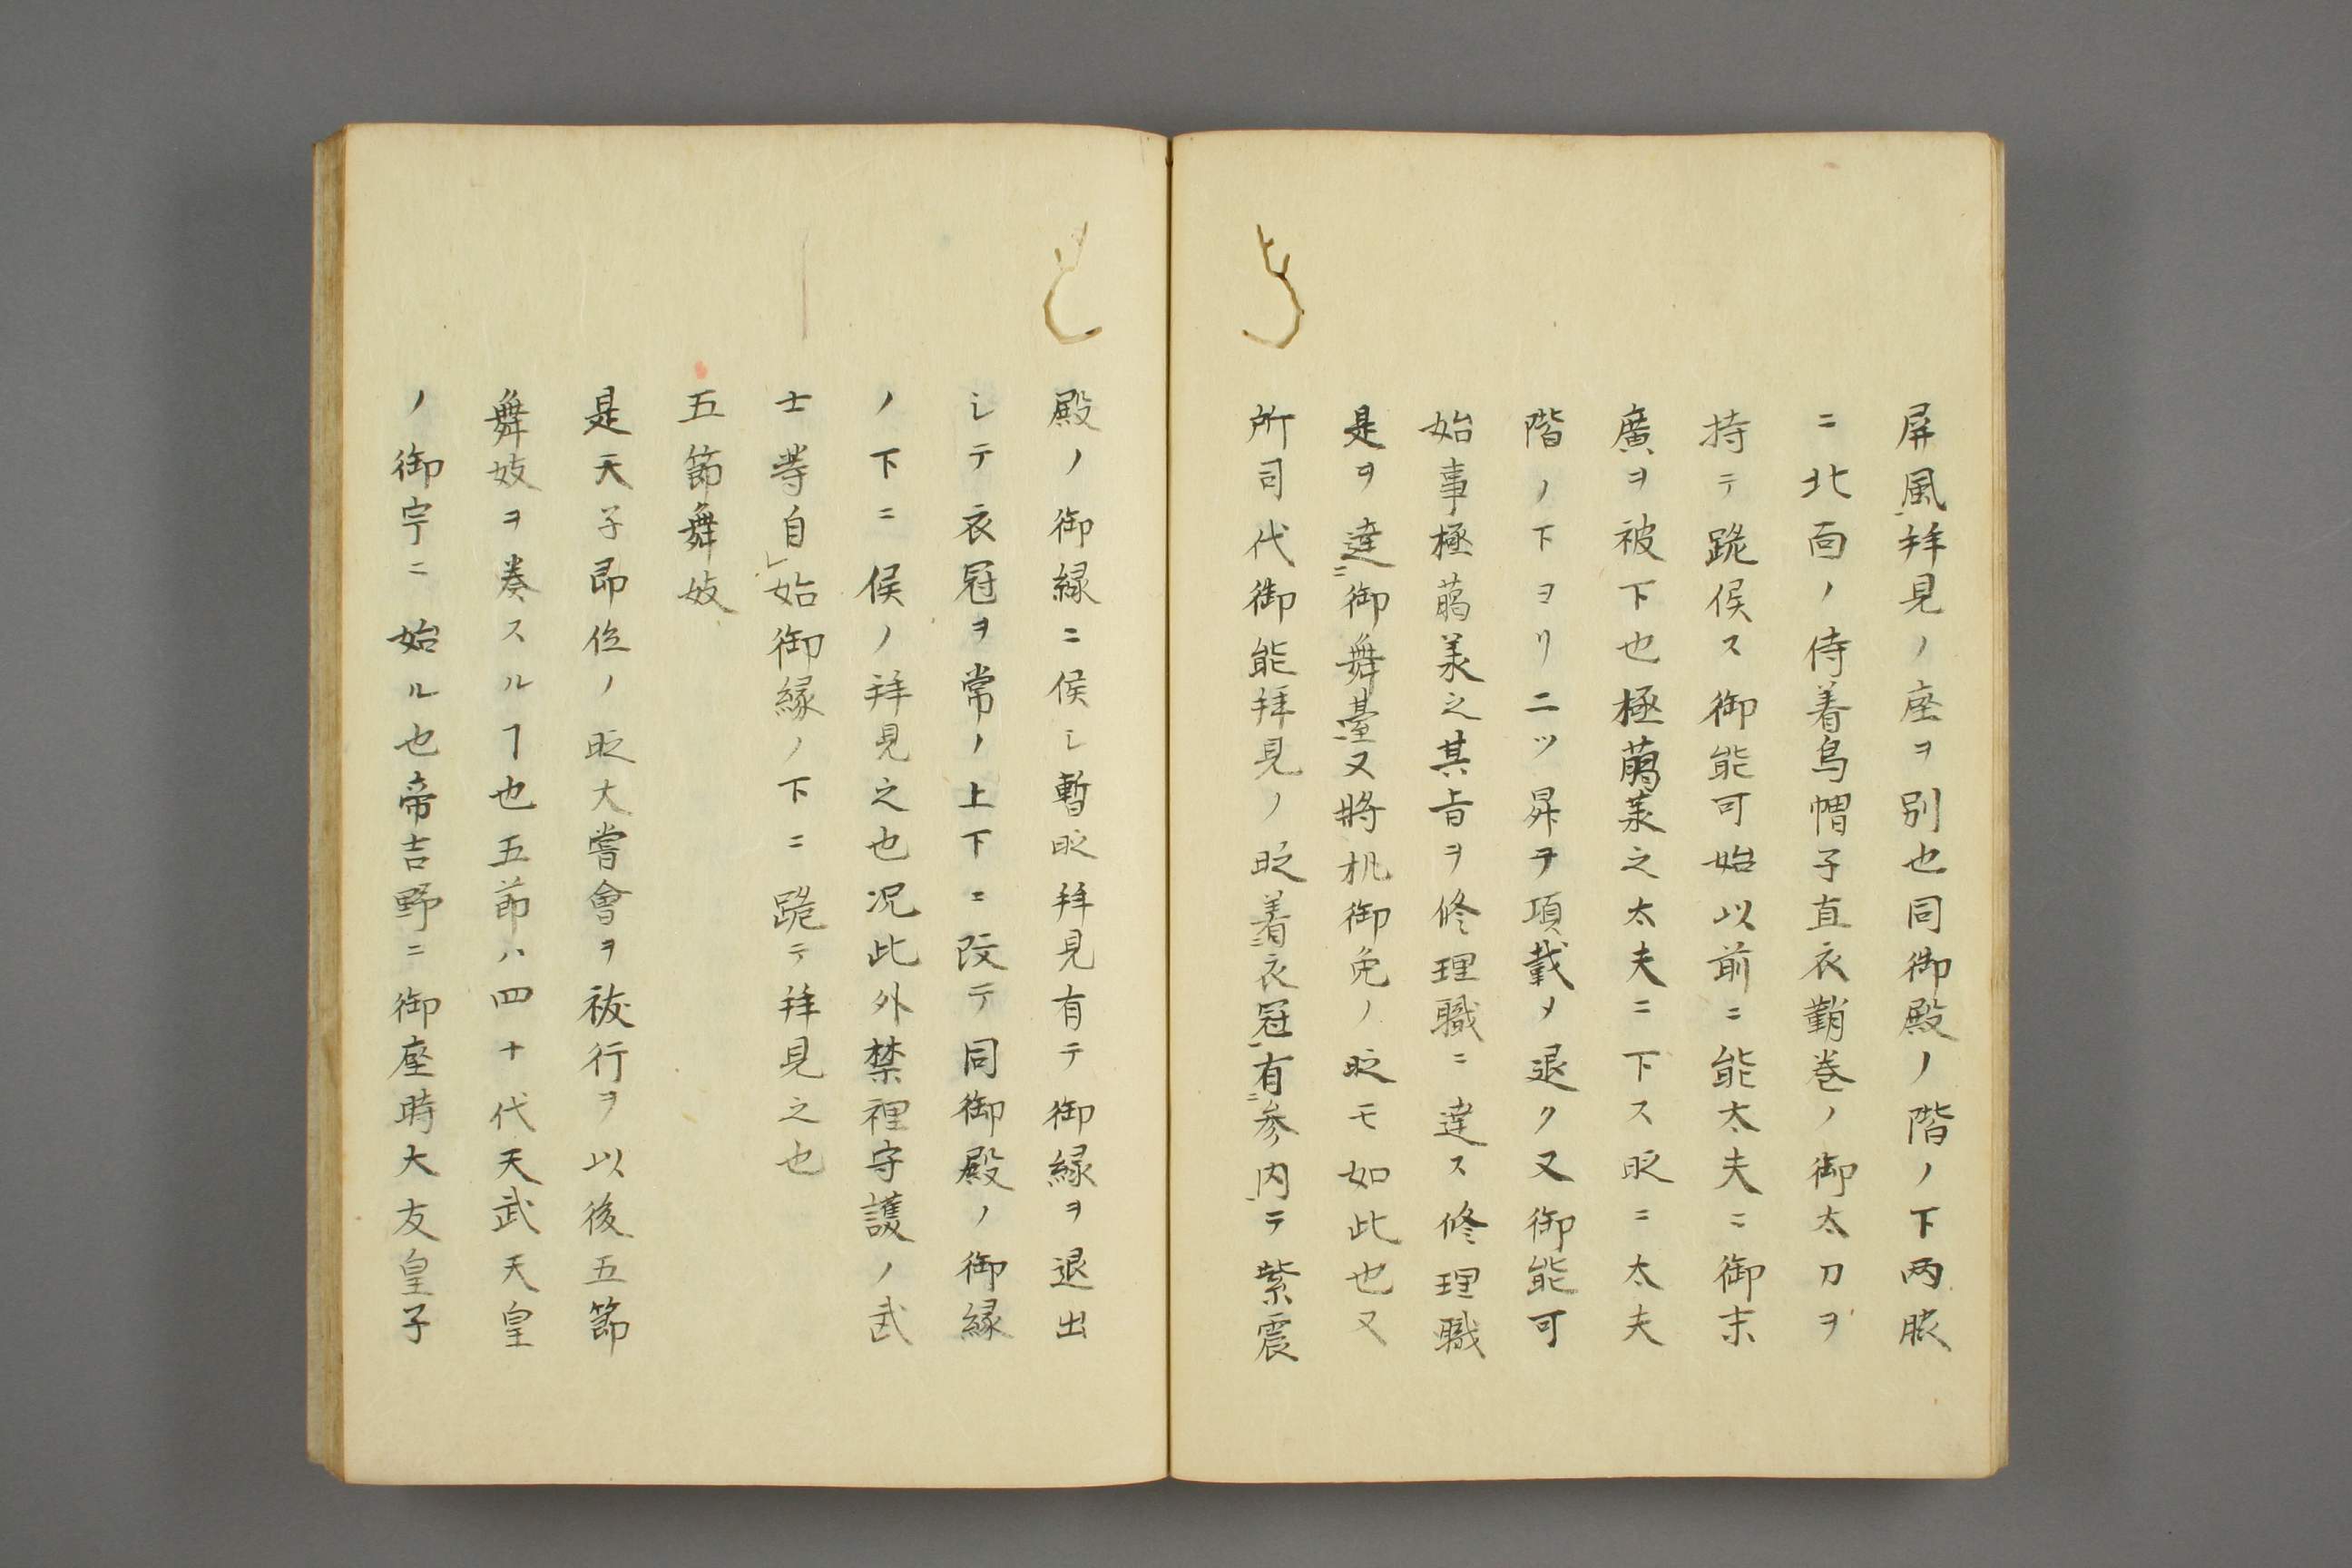 屏風拝見ノ座ヲ別也同御殿ノ階ノ下両脥
ニ北面ノ侍着烏帽子直衣鞘巻ノ御太刀ヲ
持テ跪候ス御能可始以前ニ能太夫ニ御末
廣ヲ被下也極﨟承之太夫ニ下ス时ニ太夫
階ノ下ヨリ二ツ昇テ項載メ退ク又御能可
始事極﨟承之其旨ヲ修理職ニ達ス修理職
是ヲ達ニ御舞臺又將机御免ノ时モ如此也又
所司代御能拝見ノ时着ニ衣冠有ニ参内テ紫震
殿ノ御縁ニ候シ暫时拝見有テ御縁ヲ退出
シテ衣冠ヲ常ノ上下ニ改テ同御殿ノ御縁
ノ下ニ候ノ拝見之也况此外禁裡守護ノ武
士等自始御縁ノ下ニ跪テ拝見之也
五節舞妓
是天子即位ノ时大嘗會ヲ被行ヲ以後五節
舞妓ヲ奏スルヿ也五節ハ四十代天武天皇
ノ御宇ニ始ル也帝吉野ニ御座時大友皇子